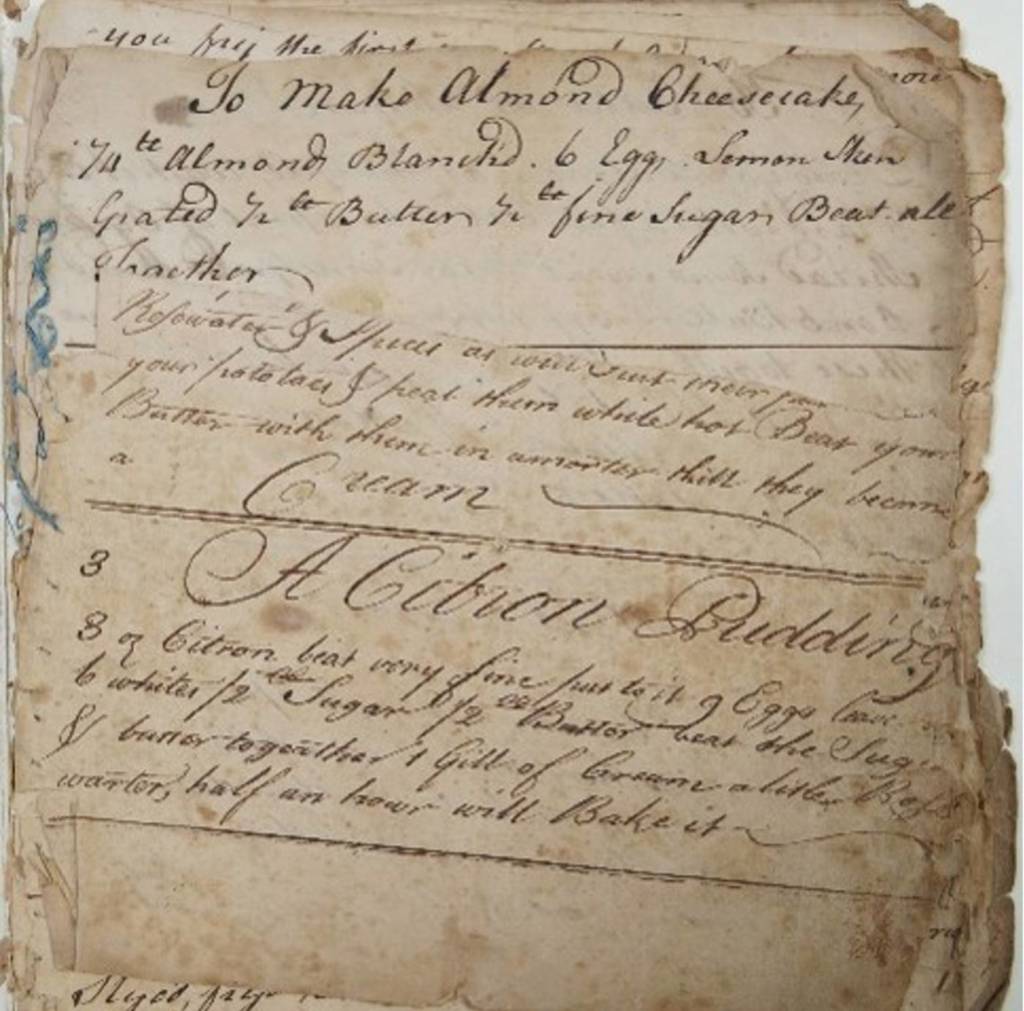 you frij the first
To Make Almond Cheesecake,
1/4 lb Almond Blanch'd. 6 Egg. Lemon Skin
Grated 1/2 lb Butter 1/2 lb fine Sugar Beat all
Rosewater & Spices as will suit
your potatoes & peal them while hot Beat your
Butter with them in amorter thill they become
a Cream
3 A Citron Pudding
3 oz Citron beat very fine put to it 9 Eggs leave
6 whites 1/2 lb Sugar 1/2 lb Butter beat the Sugar
& butter together 1 Gill of Cream a little Rose
warter, half an hour will Bake it